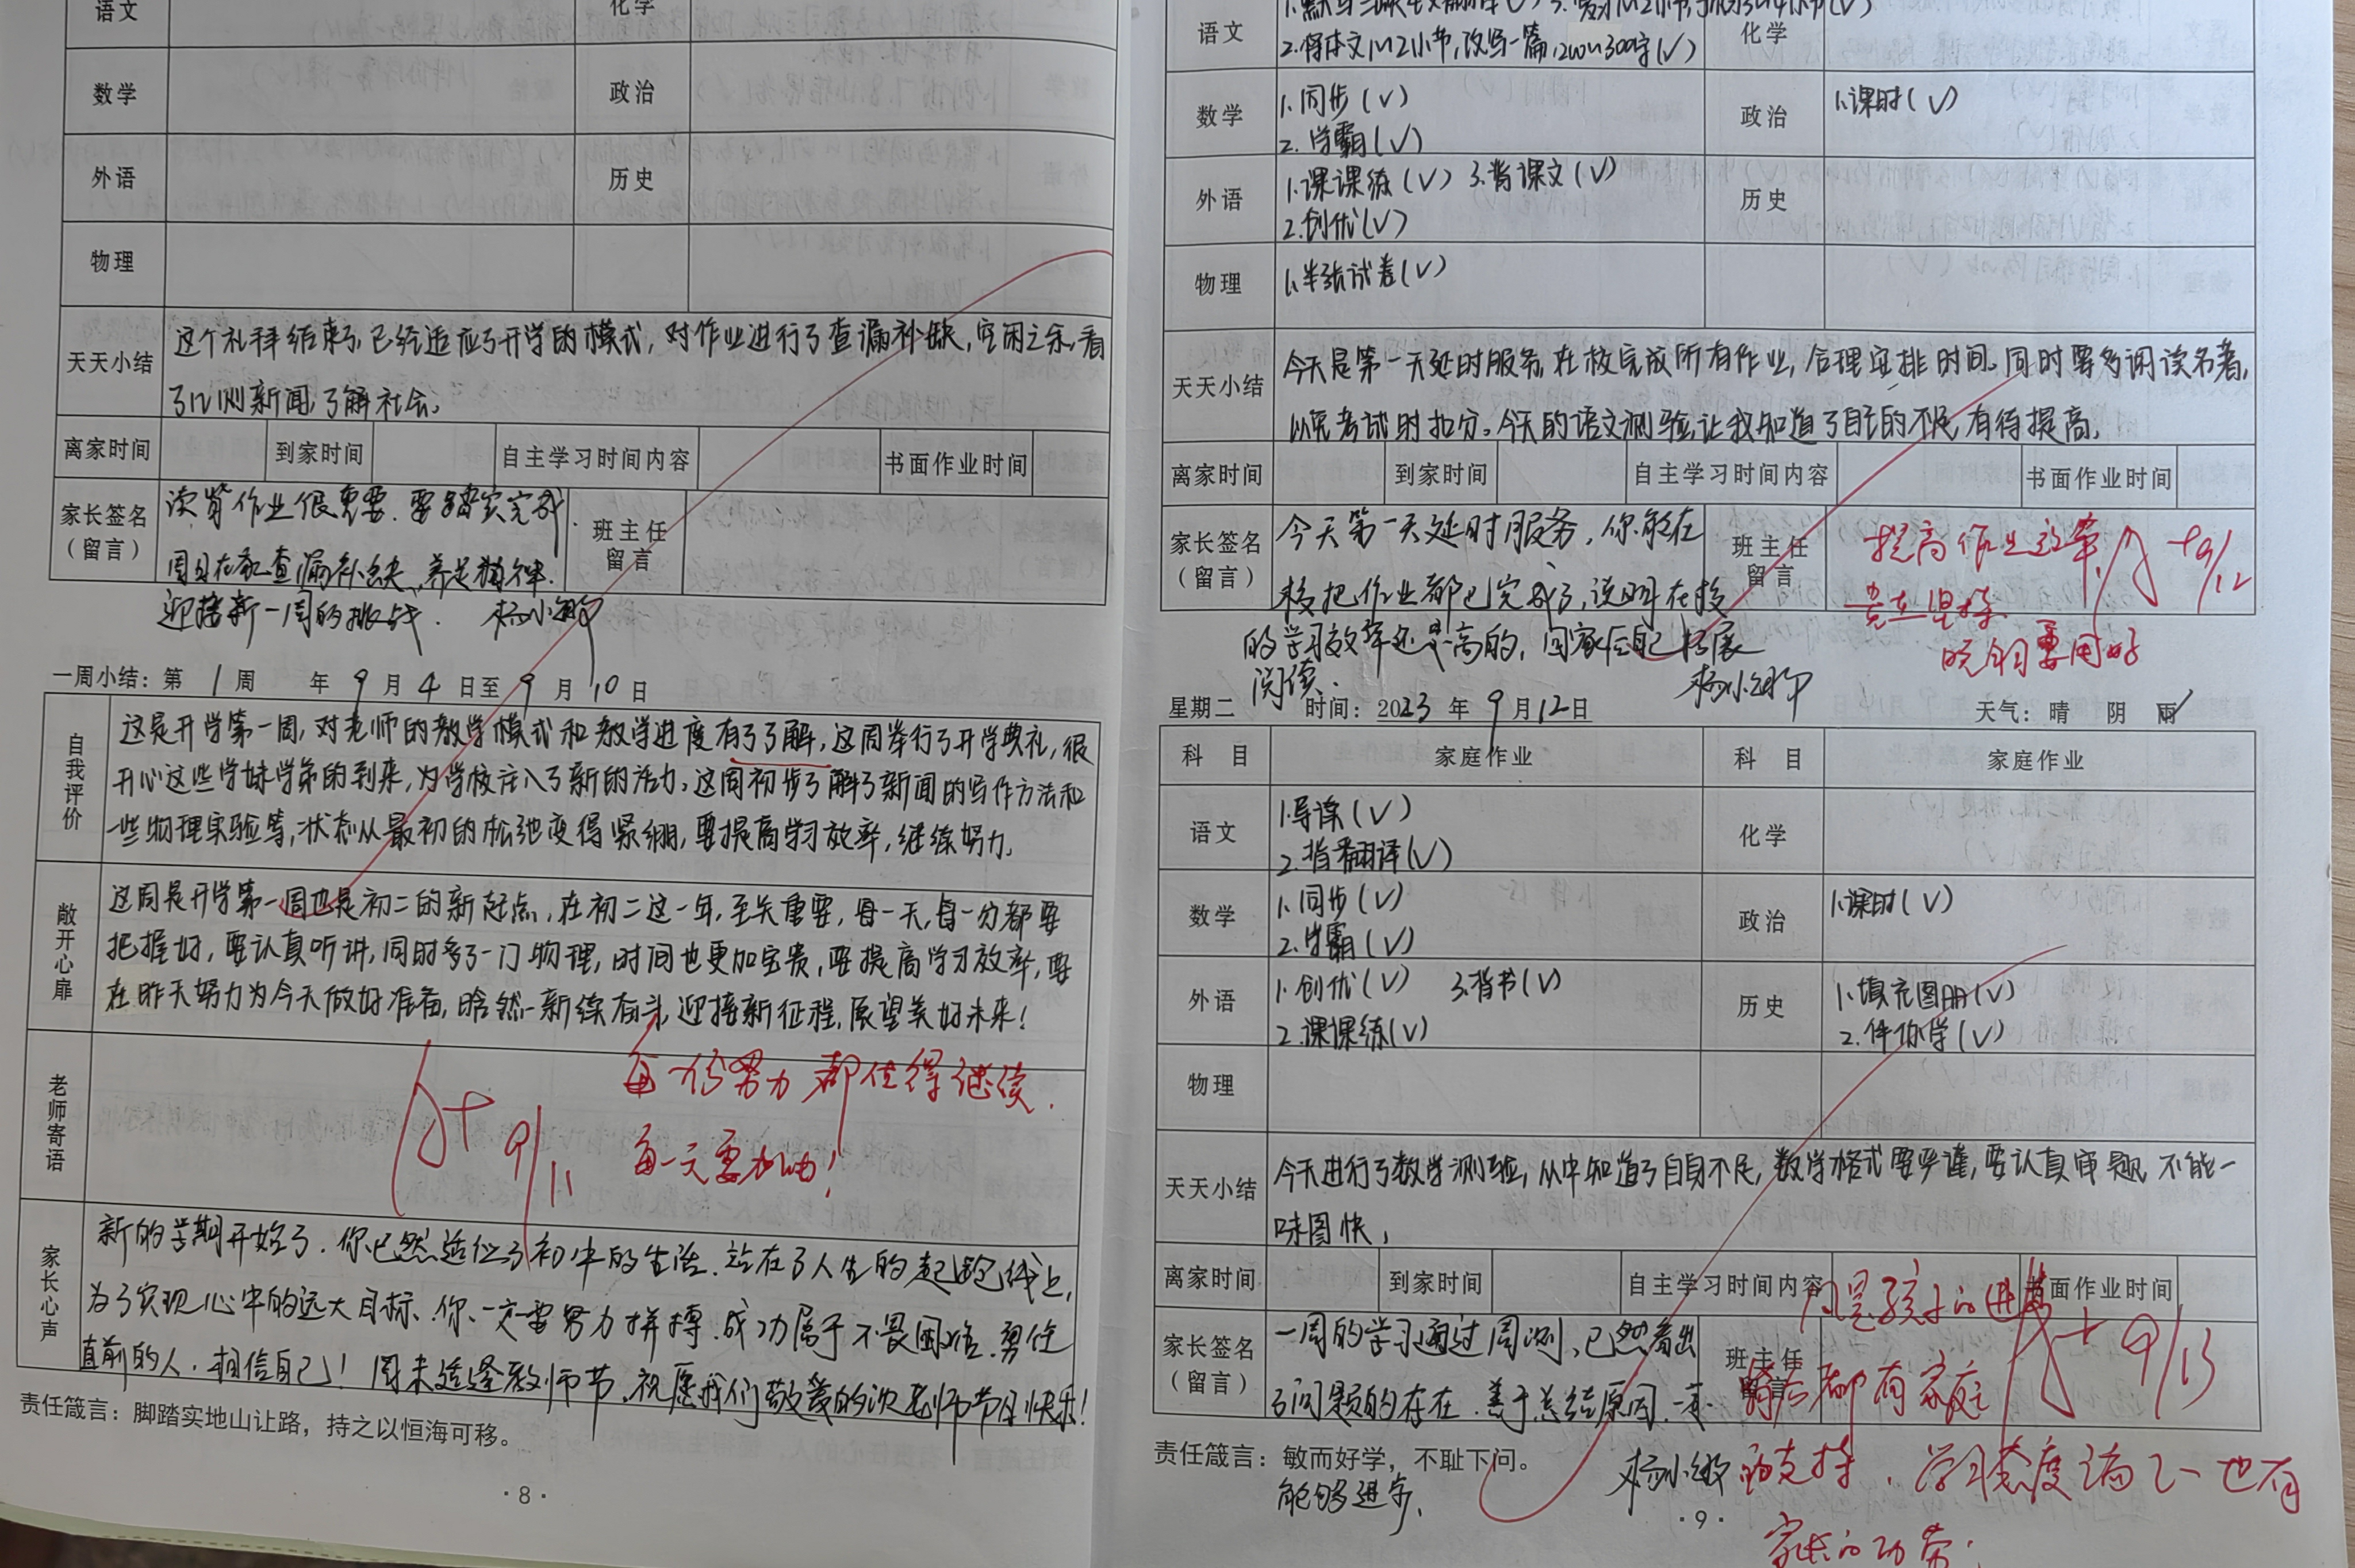 语文 化学
数学 政治
外语 历史
物理
天天小结 这个礼拜结束了,已经适应了开学的模式,对作业进行了查漏补缺,空闲之余,看
了几则新闻,了解社会。
离家时间 到家时间 自主学习时间内容 书面作业时间
家长签名(留言) 读背作业很重要,要踏实完成.
周日在家查漏补缺、养足精神.
迎接新一周的挑战! 杨小
班主任留言
一周小结:第 1 周 年 9 月 4 日至 9 月 10 日
自我评价 这是开学第一周,对老师的教学模式和教学进度有了了解,这周举行了开学典礼,很
开心这些学妹学弟的到来,为学校注入了新的活力,这周初步了解了新闻的写作方法和
一些物理实验等,状态从最初的松弛变得紧绷,要提高学习效率,继续努力。
敞开心扉 这周是开学第一周也是初二的新起点,在初二这一年,至关重要,每一天,每一分都要
把握好,要认真听讲,同时多了一门物理,时间也更加宝贵,要提高学习效率,要
在昨天努力为今天做好准备,焕然一新续奋斗,迎接新征程,展望美好未来!
老师寄语 每一份努力都值得继续.
A+ 9/11 每一天要加油!
家长心声 新的学期开始了.你已然适应了初中的生活.站在了人生的起跑线上,
为了实现心中的远大目标、你一定要努力拼搏.成功属于不畏困难.勇往
直前的人.相信自己!周末适逢教师节.祝愿我们敬爱的沈老师节日快乐!
责任箴言:脚踏实地山让路,持之以恒海可移。
·8·
语文 化学
2.将本文1~2小节,改写一篇,200~300字(√)
数学 1.同步(√) 政治 1.课时(√)
2.学霸(√)
外语 1.课课练(√) 3.背课文(√) 历史
2.创优(√)
物理 1.半张试卷(√)
天天小结 今天是第一天延时服务,在校完成所有作业,合理安排时间。同时要多阅读名著,
以免考试时扣分。今天的语文测验,让我知道了自己的不足,有待提高.
离家时间 到家时间 自主学习时间内容 书面作业时间
家长签名(留言) 今天第一天延时服务,你能在
校把作业都已完成了,说明在校
的学习效率还是高的,回家后自己拓展
阅读. 杨小
班主任留言 提高作业效率, A+ 9/12
贵在坚持
晚自习要用好
星期二 时间:2023 年 9 月 12 日 天气:晴 阴 雨
科目 家庭作业 科目 家庭作业
语文 1.导读(√) 化学
2.背翻译(√)
数学 1.同步(√) 政治 1.课时(√)
2.学霸(√)
外语 1.创优(√) 3.背书(√) 历史 1.填充图册(√)
2.课课练(√) 2.伴你学(√)
物理
天天小结 今天进行了数学测验,从中知道了自身不足,数学格式要严谨,要认真审题,不能一
味图快,
离家时间 到家时间 自主学习时间内容 书面作业时间
家长签名(留言) 一周的学习通过周测、已然看出
了问题的存在.善于总结原因.一定
能够进步. 杨小
班主任留言 凡是孩子的进步 A+ 9/13
背后都有家庭
的支持.学习态度端正也有
家长的功劳.
责任箴言:敏而好学,不耻下问。
·9·